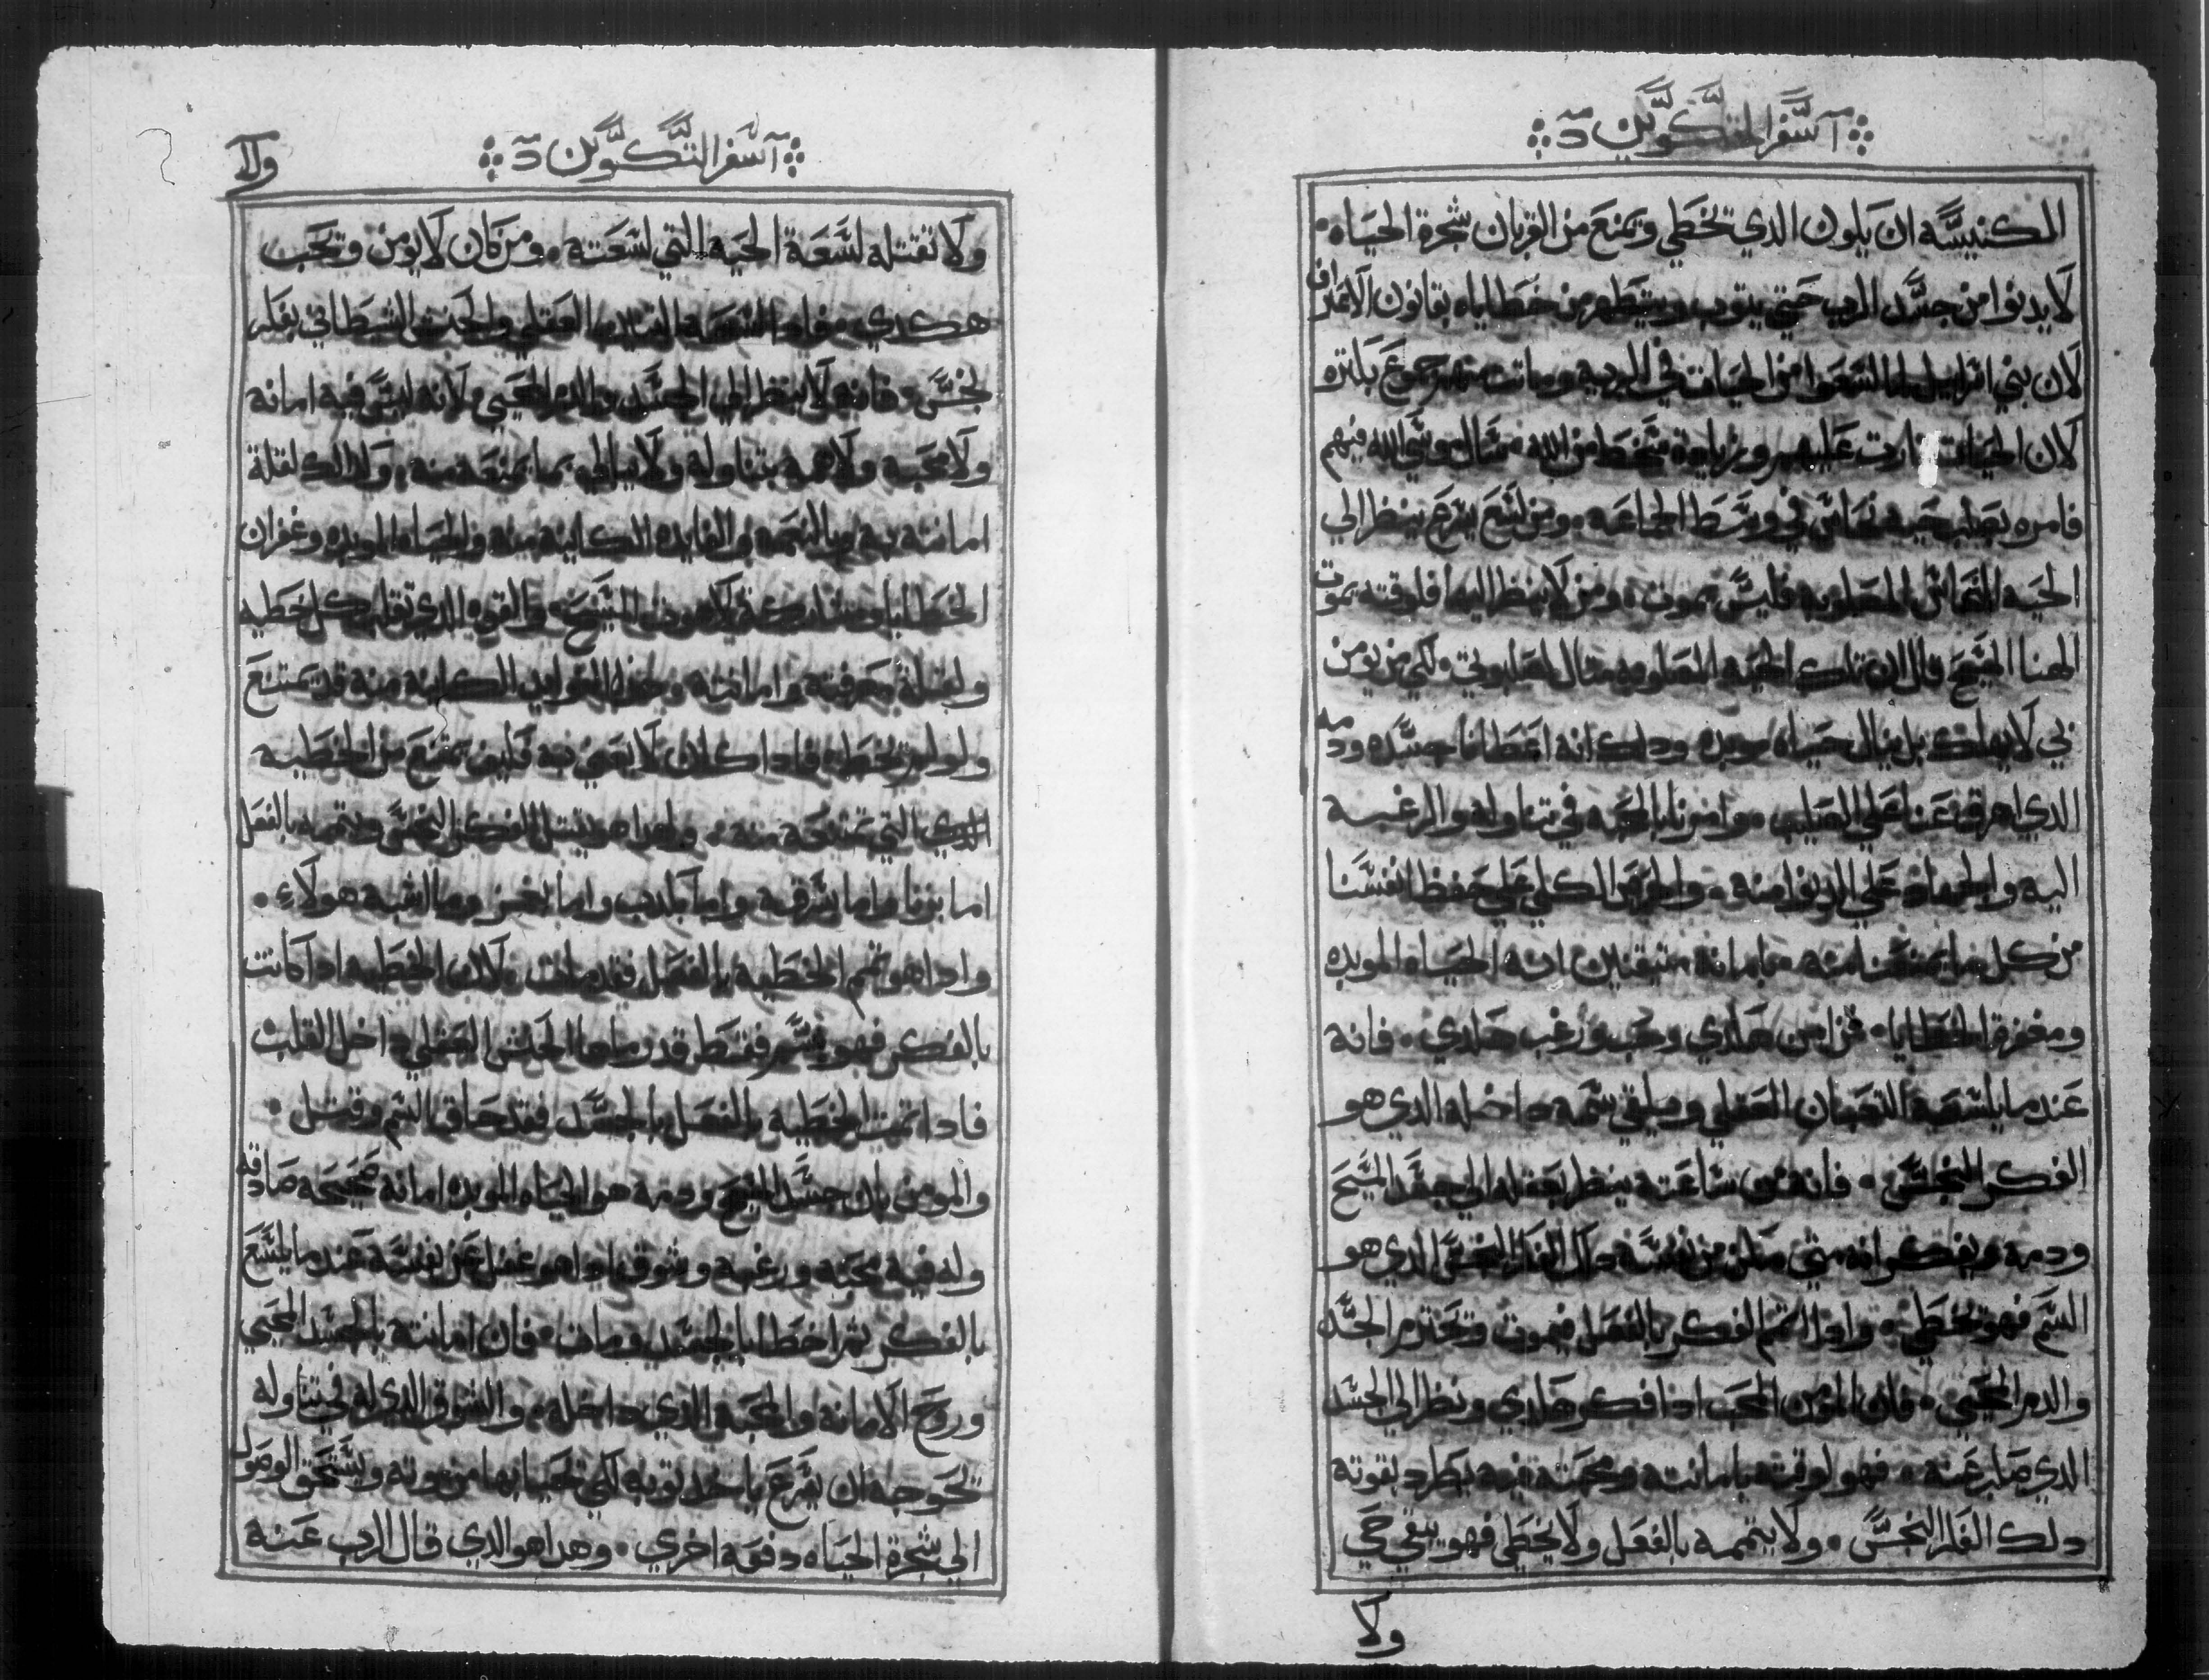 آ سفر التكوين د
الكنيسه ان يكون الدي تخطي ويمنع من القربان شجرة الحياه
لا يدنوا من جسد الرب حتي يتوب ويتطهر من خطاياه بقانون الاعتراف
لان بني اسراييل لما لسعوا من الحيات في البريه ومات منهم جموع كتيره
لان الحيات تارت عليهم وبزيادة سخط من الله سال موسي الله فيهم
فامره بصلب حية نحاس في وسط الجماعه ومن لسع يسرع ينظر الي
الحيه النحاس المصلوبه فليس يموت ومن لا ينظر اليها فلوقته يموت
الهنا المسيح قال ان تلك الحيه المصلوبه متال لصلبوتي لكي من يومن
بي لا يهلك بل ينال حياه موبده ودلك انه اعطانا جسده ودمه
الدي اهرق عنا علي الصليب وامرنا بالمحبه في تناوله والرغبه
اليه والجهاد علي الدنوا منه والحرص الكلي علي حفظ انفسنا
من كل ما يمنعنا منه بامانه متيقنين انه الحياه الموبده
ومغفرة الخطايا فمن امن هكدي وحب ورغب هكدي فانه
عند ما يلسعه التعبان العقلي ويلقي سمه داخله الدي هو
الفكر النجس فانه من ساعته ينظر بعقله الي جسد المسيح
ودمه ويفكر انه متي مكن من نفسه داك الفكر النجس الدي هو
السم فهو تخطي وادا تمم الفكر بالفعل فيموت وتعدم الجسد
والدم المحيي فان المومن المحب ادا فكر هكدي ونظر الي الجسد
الدي صلب عنه فهو لوقته بامانته ومحبته فيه يطرد بقوته
دلك الفكر النجس ولا يتممه بالفعل ولا يخطي فهو يبقي حي
ولا
آ سفر التكوين د
ولا تقتله لسعة الحيه التي لسعته ومن كان لا يومن وتحب
هكدي فان العقلي والحنش الشيطاني بفكر
نجس فانه لا ينظر الي الجسد والدم المحيي لانه ليس فيه امانه
ولا محبه ولا همه بتناوله ولا يبالي بما يمنعه منه ولدلك لقلة
امانته به وبالنعمه والفايده الكاينه منه والحياه الموبده وغفران
الخطايا لاهوت المسيح والقوه الدي تقلع كل خطيه
ولقلة معرفته وامانته وجهله الفوايد الكاينه منه قد يمتنع
ولو لم تخطا فادا كان لا يعني به فكيف يمتنع من الخطيه
الدي التي تمنعه منه ولهدا هو يقبل الفكر النجس ويتممه بالفعل
اما بزنا واما بسرقه واما بكدب واما وما اشبه هولاء
وادا هو تمم الخطيه بالفعل فقد مات لان الخطيه ادا كانت
بالفكر فهو سم فقط قد رماها الحنش العقلي داخل القلب
فادا تمت الخطيه بالفعل بالجسد فقد حاق السم وقتل
والمومن بان جسد المسيح ودمه هو الحياه الموبده امانه صحيحه صادقه
وله فيه محبه ورغبه وشوق ادا هو غفل عن نفسه عند ما يلسع
بالفكر تم اخطا بالجسد ومات فان امانته بالجسد المحيي
وروح الامانه والمحبه الدي داخله والشوق الدي له في تناوله
تحوجه ان يسرع ياخد توبه لكي تحيا بها من موته ويستحق الوصول
الي شجرة الحياه دفعه اخري وهدا هو الدي قال الرب عنه